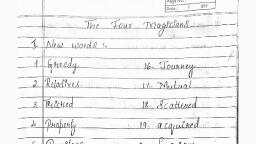 The Four Magicians
I. New words :-
1 Greedy 16. Journey
2. Relatives 17. Mutual
3 18. Scattered
4 Property 19. acquired